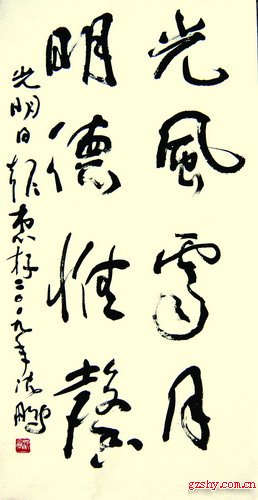 光風霽月
明德惟馨
光明日報惠存二〇〇九年沈鵬
gzshy.com.cn